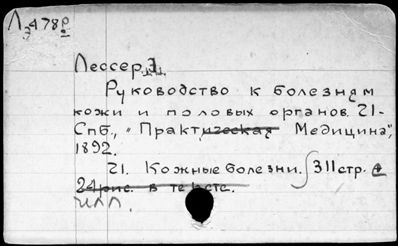 Л 478р
э
Лессер, Э.
Руководство к болезням
кожи и половых органов. Ч1-
Спб., "Практическая Медицина",
1892.
Ч1. Кожные болезни. 311 стр. с
24 рис. в тексте.
илл.